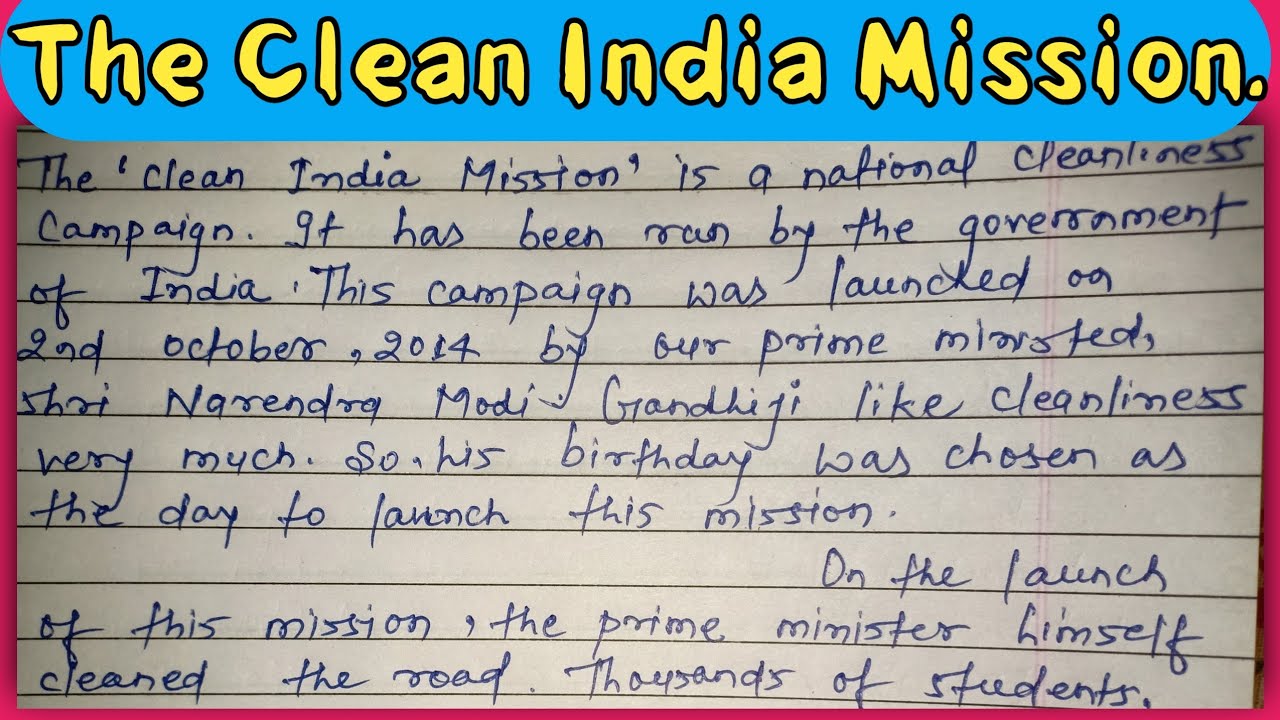 The Clean India Mission.
The 'Clean India Mission' is a national cleanliness
Campaign. It has been run by the government
of India. This campaign was launched on
2nd october, 2014 by our prime ministed,
shri Narendra Modi. Gandhiji like cleanliness
very much. So, his birthday was chosen as
the day to launch this mission.
On the launch
of this mission, the prime minister himself
cleaned the road. Thousands of students.